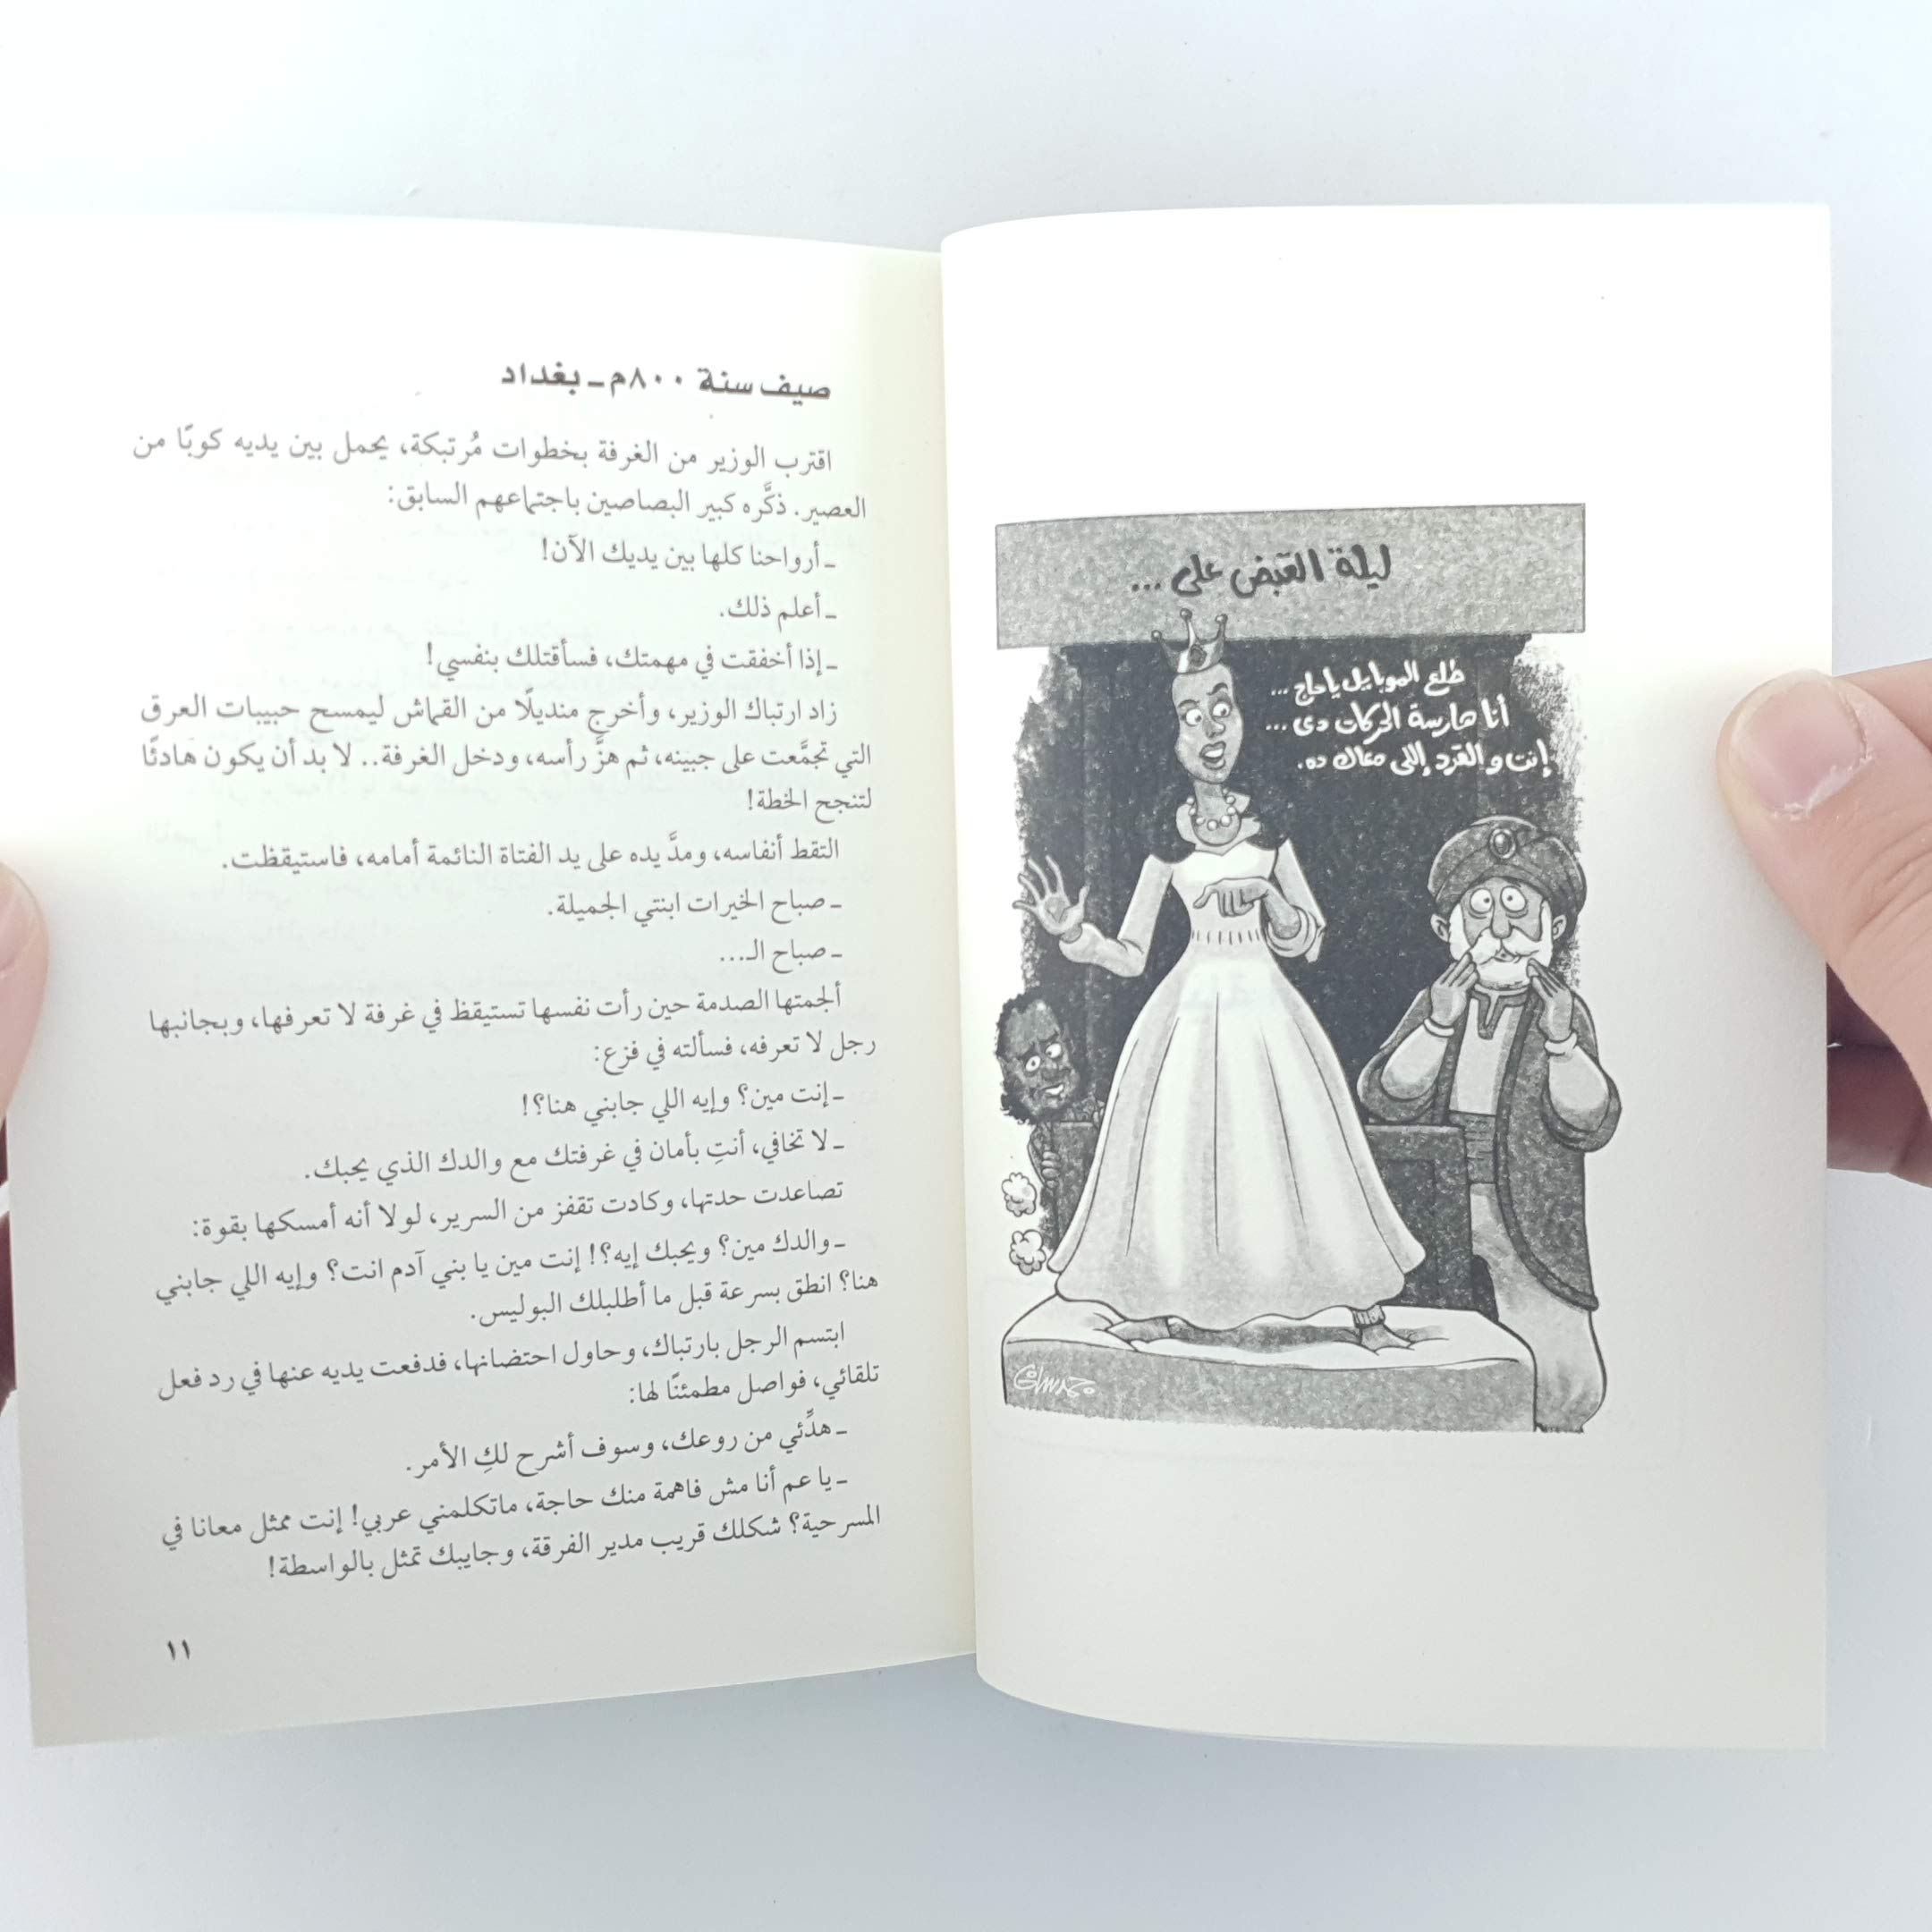 ليلة القبض على ...
طلع الموبايل يا حاج ...
أنا حارسة الحركات دى ...
إنت والقرد إللى معاك ده.
صيف سنة ٨٠٠م ـ بغداد
اقترب الوزير من الغرفة بخطوات مُرتبكة، يحمل بين يديه كوبًا من
العصير. ذكَّره كبير البصاصين باجتماعهم السابق:
ـ أرواحنا كلها بين يديك الآن!
ـ أعلم ذلك.
ـ إذا أخفقت في مهمتك، فسأقتلك بنفسي!
زاد ارتباك الوزير، وأخرج منديلًا من القماش ليمسح حبيبات العرق
التي تجمَّعت على جبينه، ثم هزَّ رأسه، ودخل الغرفة.. لا بد أن يكون هادئًا
لتنجح الخطة!
التقط أنفاسه، ومدَّ يده على يد الفتاة النائمة أمامه، فاستيقظت.
ـ صباح الخيرات ابنتي الجميلة.
ـ صباح الـ...
ألجمتها الصدمة حين رأت نفسها تستيقظ في غرفة لا تعرفها، وبجانبها
رجل لا تعرفه، فسألته في فزع:
ـ إنت مين؟ وإيه اللي جابني هنا؟!
ـ لا تخافي، أنتِ بأمان في غرفتك مع والدك الذي يحبك.
تصاعدت حدتها، وكادت تقفز من السرير، لولا أنه أمسكها بقوة:
ـ والدك مين؟ ويحبك إيه؟! إنت مين يا بني آدم انت؟ وإيه اللي جابني
هنا؟ انطق بسرعة قبل ما أطلبلك البوليس.
ابتسم الرجل بارتباك، وحاول احتضانها، فدفعت يديه عنها في رد فعل
تلقائي، فواصل مطمئنًا لها:
ـ هدِّئي من روعك، وسوف أشرح لكِ الأمر.
ـ يا عم أنا مش فاهمة منك حاجة، ماتكلمني عربي! إنت ممثل معانا في
المسرحية؟ شكلك قريب مدير الفرقة، وجايبك تمثل بالواسطة!
١١